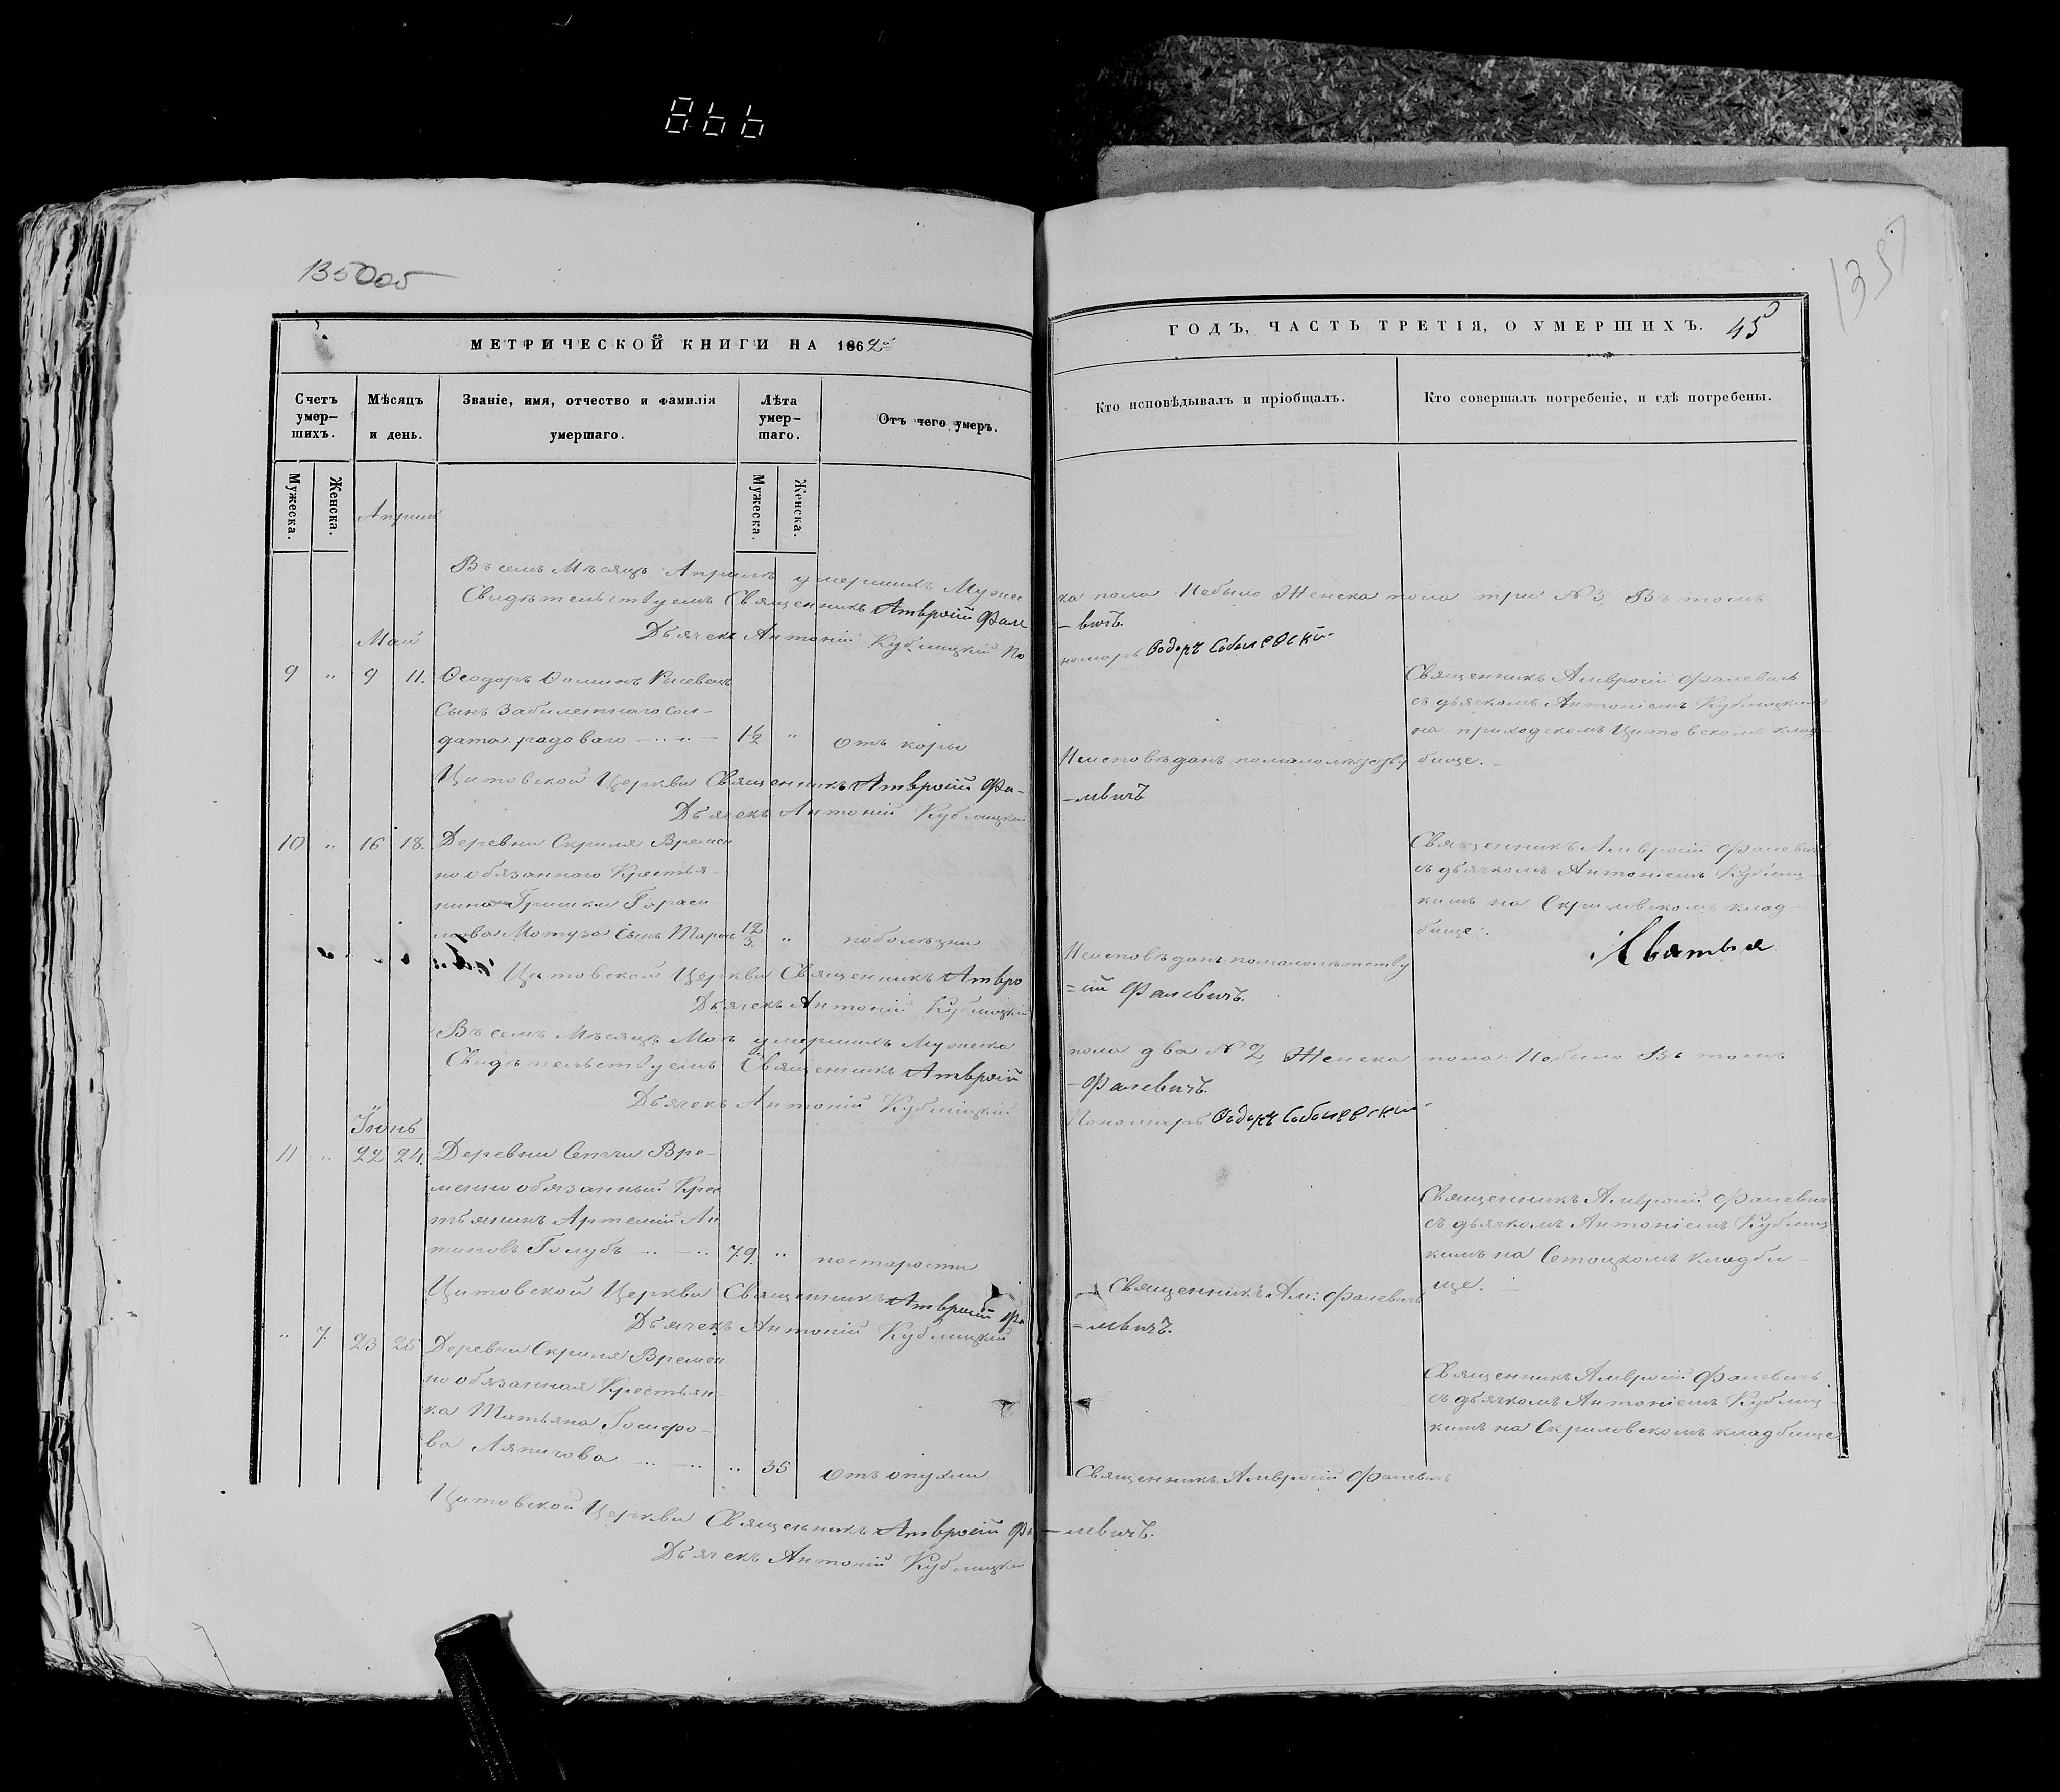 866
135005
135
МЕТРИЧЕСКОЙ КНИГИ НА 1862й
ГОДЪ, ЧАСТЬ ТРЕТІЯ, О УМЕРШИХЪ. 45
Счетъ умер-шихъ.
Мѣсяцъ и день.
Званіе, имя, отчество и фамилія умершаго.
Лѣта умер-шаго.
Отъ чего умеръ.
Кто исповѣдывалъ и пріобщалъ.
Кто совершалъ погребеніе, и гдѣ погребены.
Мужеска. Женска.
Мужеска. Женска.
Апрель
Въ семъ Мѣсяцѣ Априлѣ умершихъ Мужес
ка пола Небыло Женска пола три №3. Въ томъ
Свидѣтельствуемъ Священникъ Амвросій Фале
–вичъ.
Дьячекъ Антоній Кублицкій По
номарь Ѳодоръ Соболевскій
Май
9 " 9 11. Ѳеодоръ Ѳоминъ
Сынъ Забилетнаго Сол-
дата рядоваго 1½ " отъ коры
Неисповѣданъ помалолѣтству
Священникъ Амвросій Фалевичъ
съ дьячкомъ Антоніемъ Кублицкимъ
на приходскомъ Цитовскомъ клад
бище.
Цитовской Церкви Священникъ Амвросій Фа-
–левичъ
Дьячекъ Антоній Кублицкій
10 " 16 18. Деревни Скриля Времен
но обязаннаго Крестья-
нина Гришки Гараси-
мова Мотуза Сынъ Тарасъ " поболѣзни
Неисповѣданъ помалолѣтству
Священникъ Амвросій Фалевичъ
съ дьячкомъ Антоніемъ Кублиц-
кимъ на Скрилевскомъ клад-
бище.
Цитовской Церкви Священникъ Амвро
=ій Фалевичъ.
Дьячекъ Антоній Кублицкій
Въ семъ Мѣсяцѣ Маѣ умершихъ Мужеска
пола два №2 Женска пола Небыло Въ томъ
Свидѣтельствуемъ Священникъ Амвросій
–Фалевичъ.
Дьячекъ Антоній Кублицкій
Пономарь Ѳодоръ Соболевскій
Іюнь
11 " 22 24. Деревни Сетчи Вре-
менно обязанный Крес
тьянинъ Артемій Ан
типовъ Голубъ 79. " постарости
Священникъ Ам: Фалевичъ
Священникъ Амвросій Фалевичъ
съ дьячкомъ Антоніемъ Кублиц
кимъ на Сетоцкомъ кладби-
ще.
Цитовской Церкви Священникъ Амвросій Фа
=левичъ.
Дьячекъ Антоній Кублицкій
" 7. 23 25 Деревни Скриля Времен
но обязанная Крестьян-
ка Татьяна Іосифо-
ва Ляпичова " 35 отъ опухли
Священникъ Амвросій Фалевичъ
Священникъ Амвросій Фалевичъ
съ дьячкомъ Антоніемъ Кублиц-
кимъ на Скриловскомъ кладбище
Цитовской Церкви Священникъ Амвросій Фа
–левичъ.
Дьячекъ Антоній Кублицкій